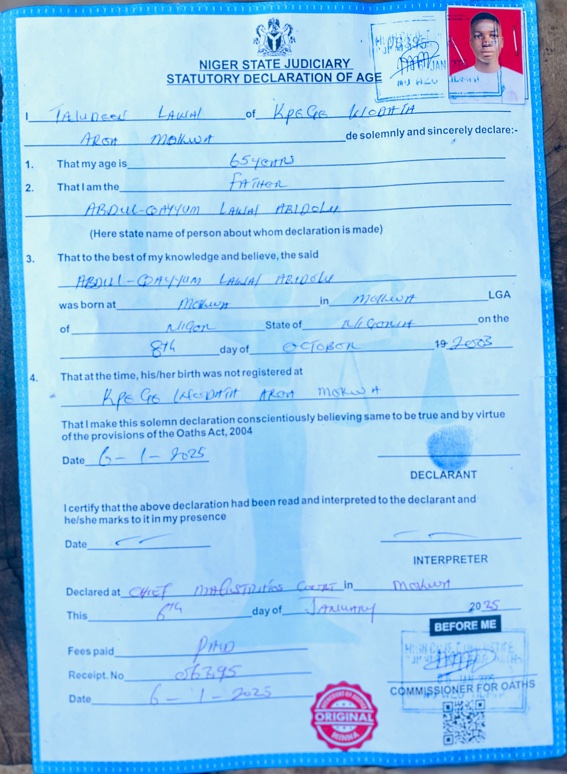 NIGER STATE JUDICIARY
STATUTORY DECLARATION OF AGE
I TAJUDEEN LAWAL of KPEGE
AREA MOKWA de solemnly and sincerely declare:-
1. That my age is 65 YEARS
2. That I am the FATHER
ABDUL-QAYYUM LAWAL ABIDOLU
(Here state name of person about whom declaration is made)
3. That to the best of my knowledge and believe, the said
ABDUL-QAYYUM LAWAL ABIDOLU
was born at MOKWA in MOKWA LGA
of NIGER State of NIGERIA on the
8th day of OCTOBER 19 2003
4. That at the time, his/her birth was not registered at
KPEGE AREA MOKWA
That I make this solemn declaration conscientiously believing same to be true and by virtue
of the provisions of the Oaths Act, 2004
Date 6-1-2025
DECLARANT
I certify that the above declaration had been read and interpreted to the declarant and
he/she marks to it in my presence
Date
INTERPRETER
Declared at CHIEF MAGISTRATES COURT in MOKWA
This 6th day of JANUARY 2025
BEFORE ME
Fees paid PAID
Receipt. No 056395
COMMISSIONER FOR OATHS
Date 6-1-2025
ORIGINAL
MINNA